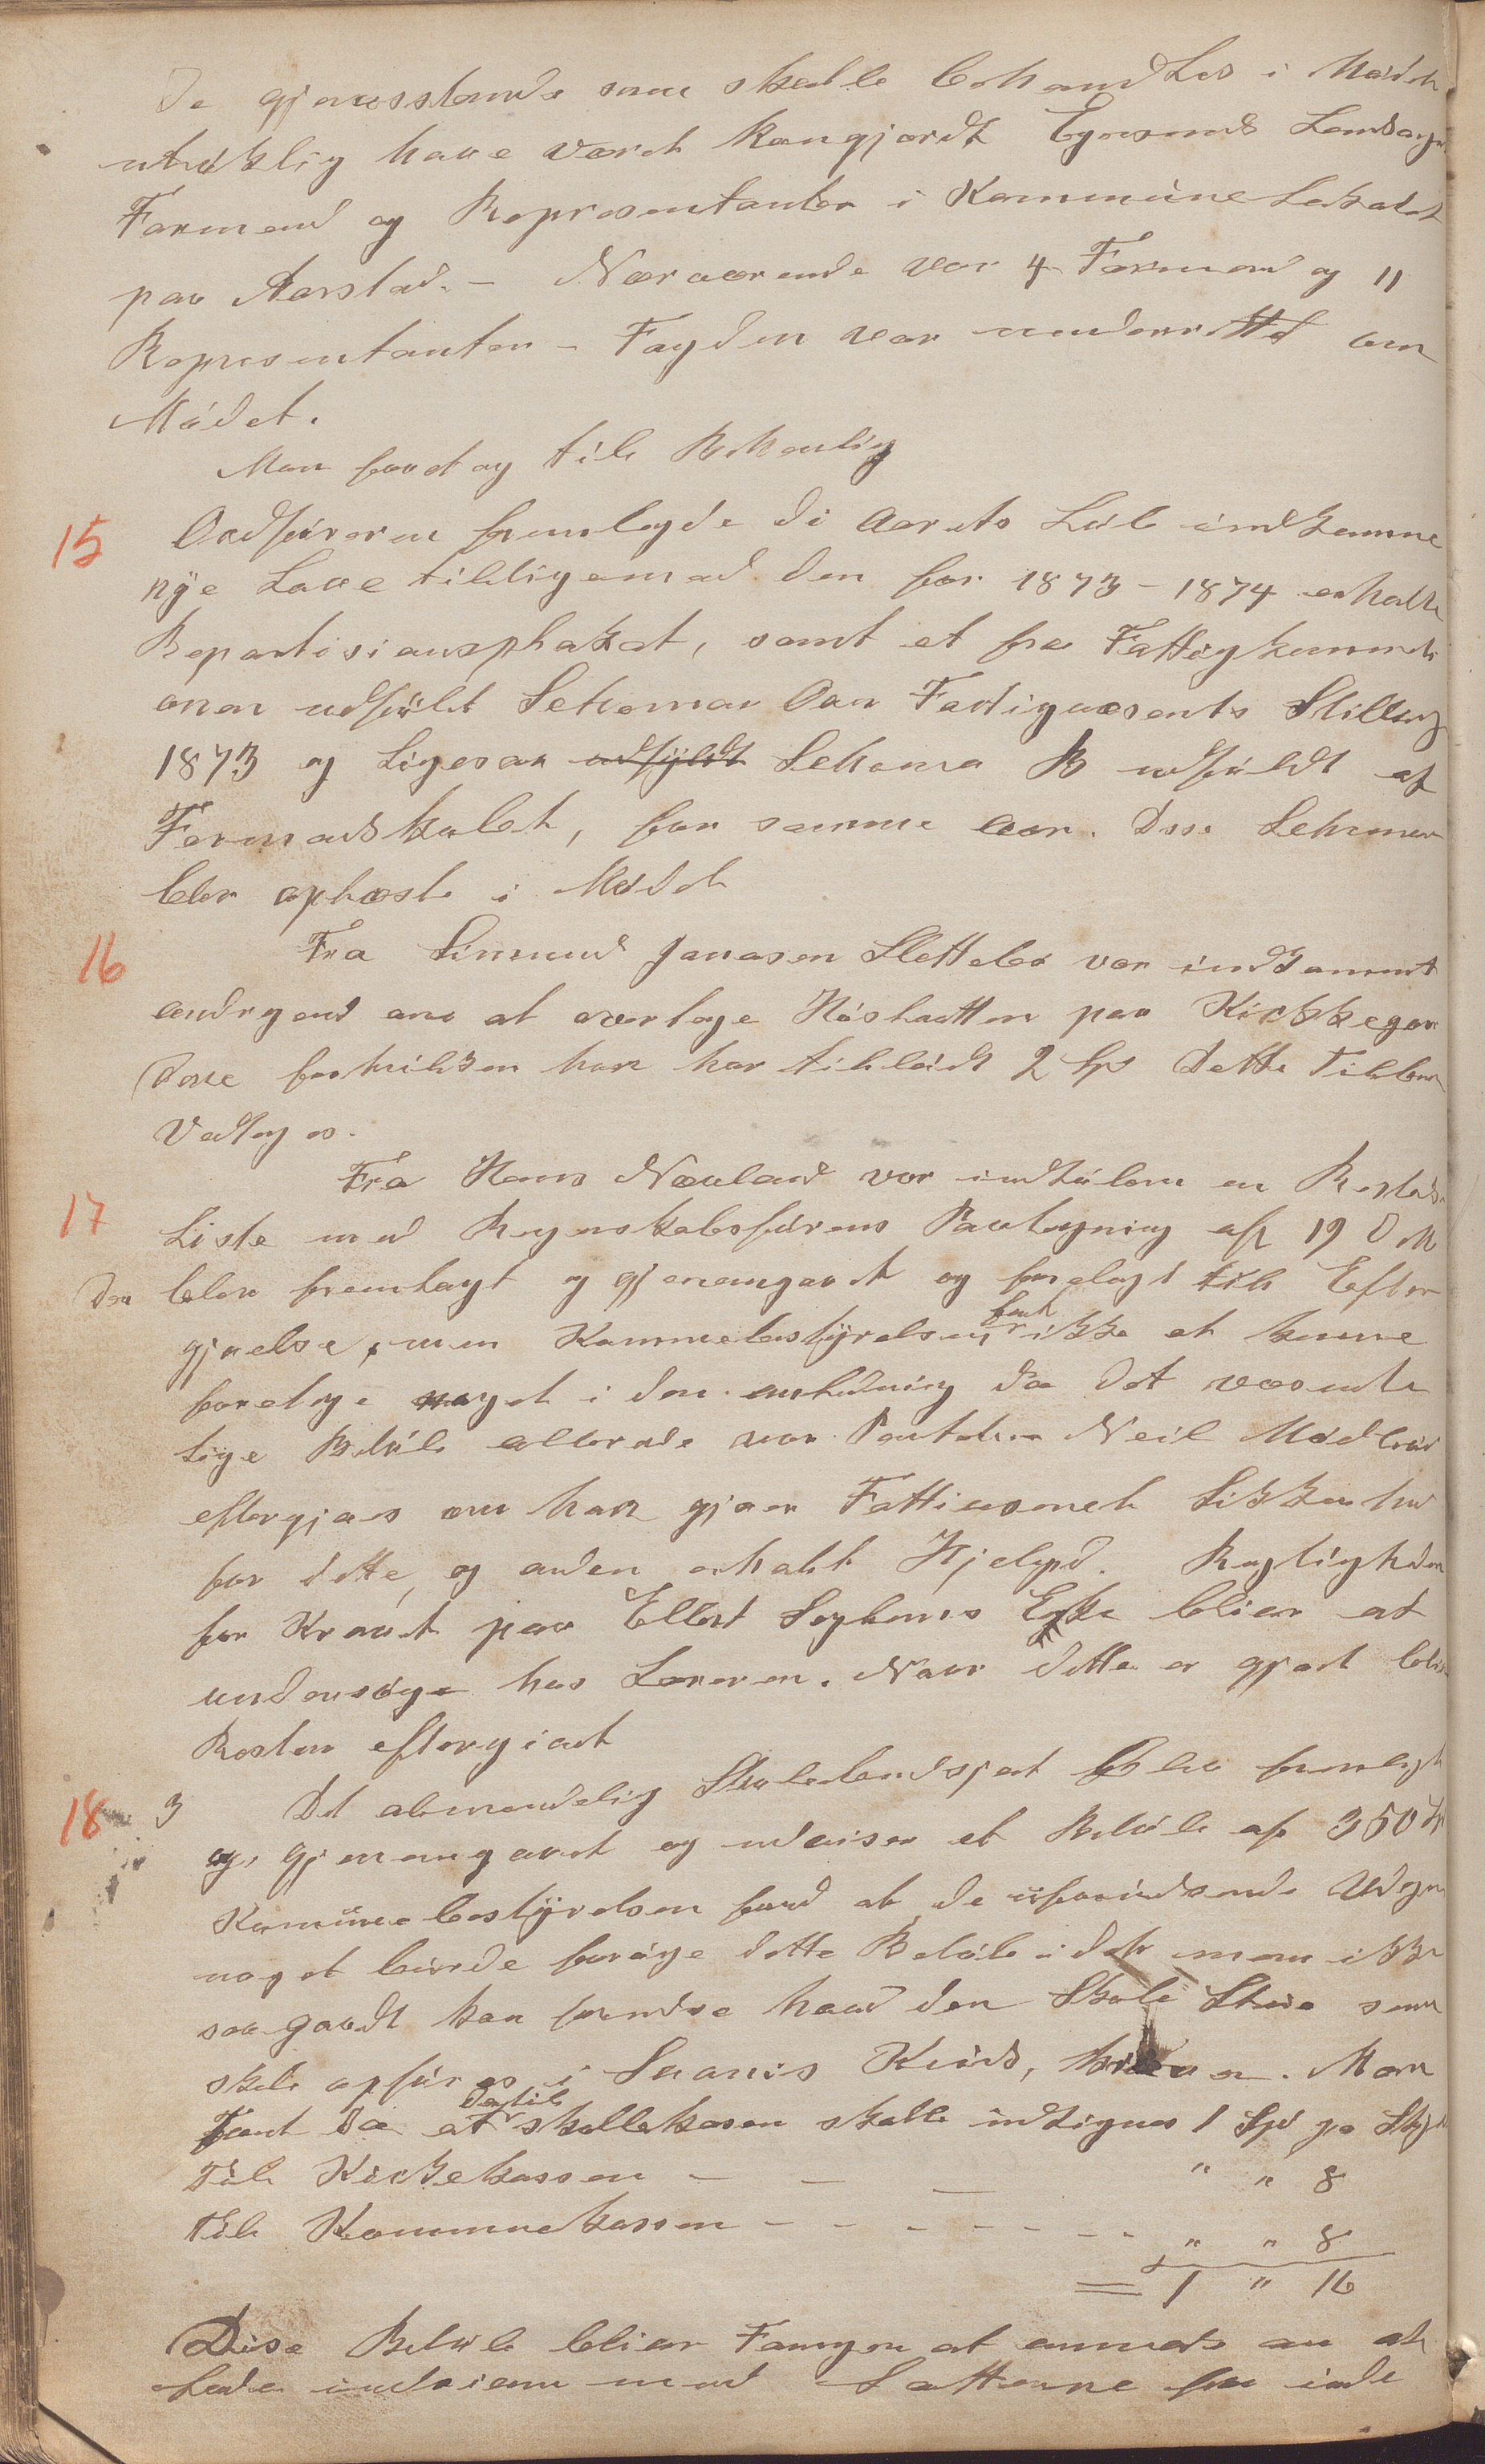 De gjensstande som skulle behandles i Mødet
have været kungjordt Egersunds Landsogn
Formend og Representanter i Kommune Lokalet
paa Aarstad. - Nærværende var 4 Formend og 11
Representanter - Fogden var underrettet om
Mødet.
Man foretog til Behanlig
15 Ordføreren fremlagde di Aarets Løb indkomne
nye Love tilligemed den for 1873 - 1874 erholte
Repartisionsplakat, samt et fra Fattigkommisi
onen udfyldt Schema Om Fattigvæsents Stilling
1873 og Ligesaa udfyldt Schema B udfyldt af
Formandskabet, for samme Aar. Disse Schemaer
blev oplæste i Mødet
16 Fra Simund Janasen Slettebø var indkommet
andragend om at overtage Høslaatten paa Kirkegaar
dene for hvilken han har tilbødt 2 Sp Dette Tilbud
Vedtoges.
17 Fra Hans Næuland var indkommen en Restants
Liste med Regnskabsførens Paategning af 19 d M
Den blev fremlagt og gjenemgaaet og forelagt til Efter
givelse, men Kommebestyrelsen fant ikke at kunne
foretage noget i den anledning da det væsente
lige Beløb allerede var Neil Mødbrø
eftergives om han gjver Fattivæsenet Sikkerhed
for dette og anden erholt Hjelpd. Rigtigheden
for Kravet paa Ellert Seglems Enke bliver at
undersøge hos Læreren. Naar dette er gjort bliver
Resten eftergivet
18 3 Det almendelig Skolebudsjet blev fremlagt
og gjenemgaaet og udviser et Beløb af 350 Sp
Kommunebestyrelsen fand at de uforudsende Udgivter
noget burde forøge dette Beløb idet man ikke
saa gaadt kan forudse hvad den Skole Stue som
skal opføres i Svanis Kreds, vil Man
Fant da at dertil skollekassen skulle udlignes 1 Spd pr Skyld
Til Kirkekassen - - - " " 8
til Kommunekassen - - - - - - - " " 8
= 1 " 16
Disse Beløb bliver Fougen at anmode om at
lade inddrive med Skatterne for inde